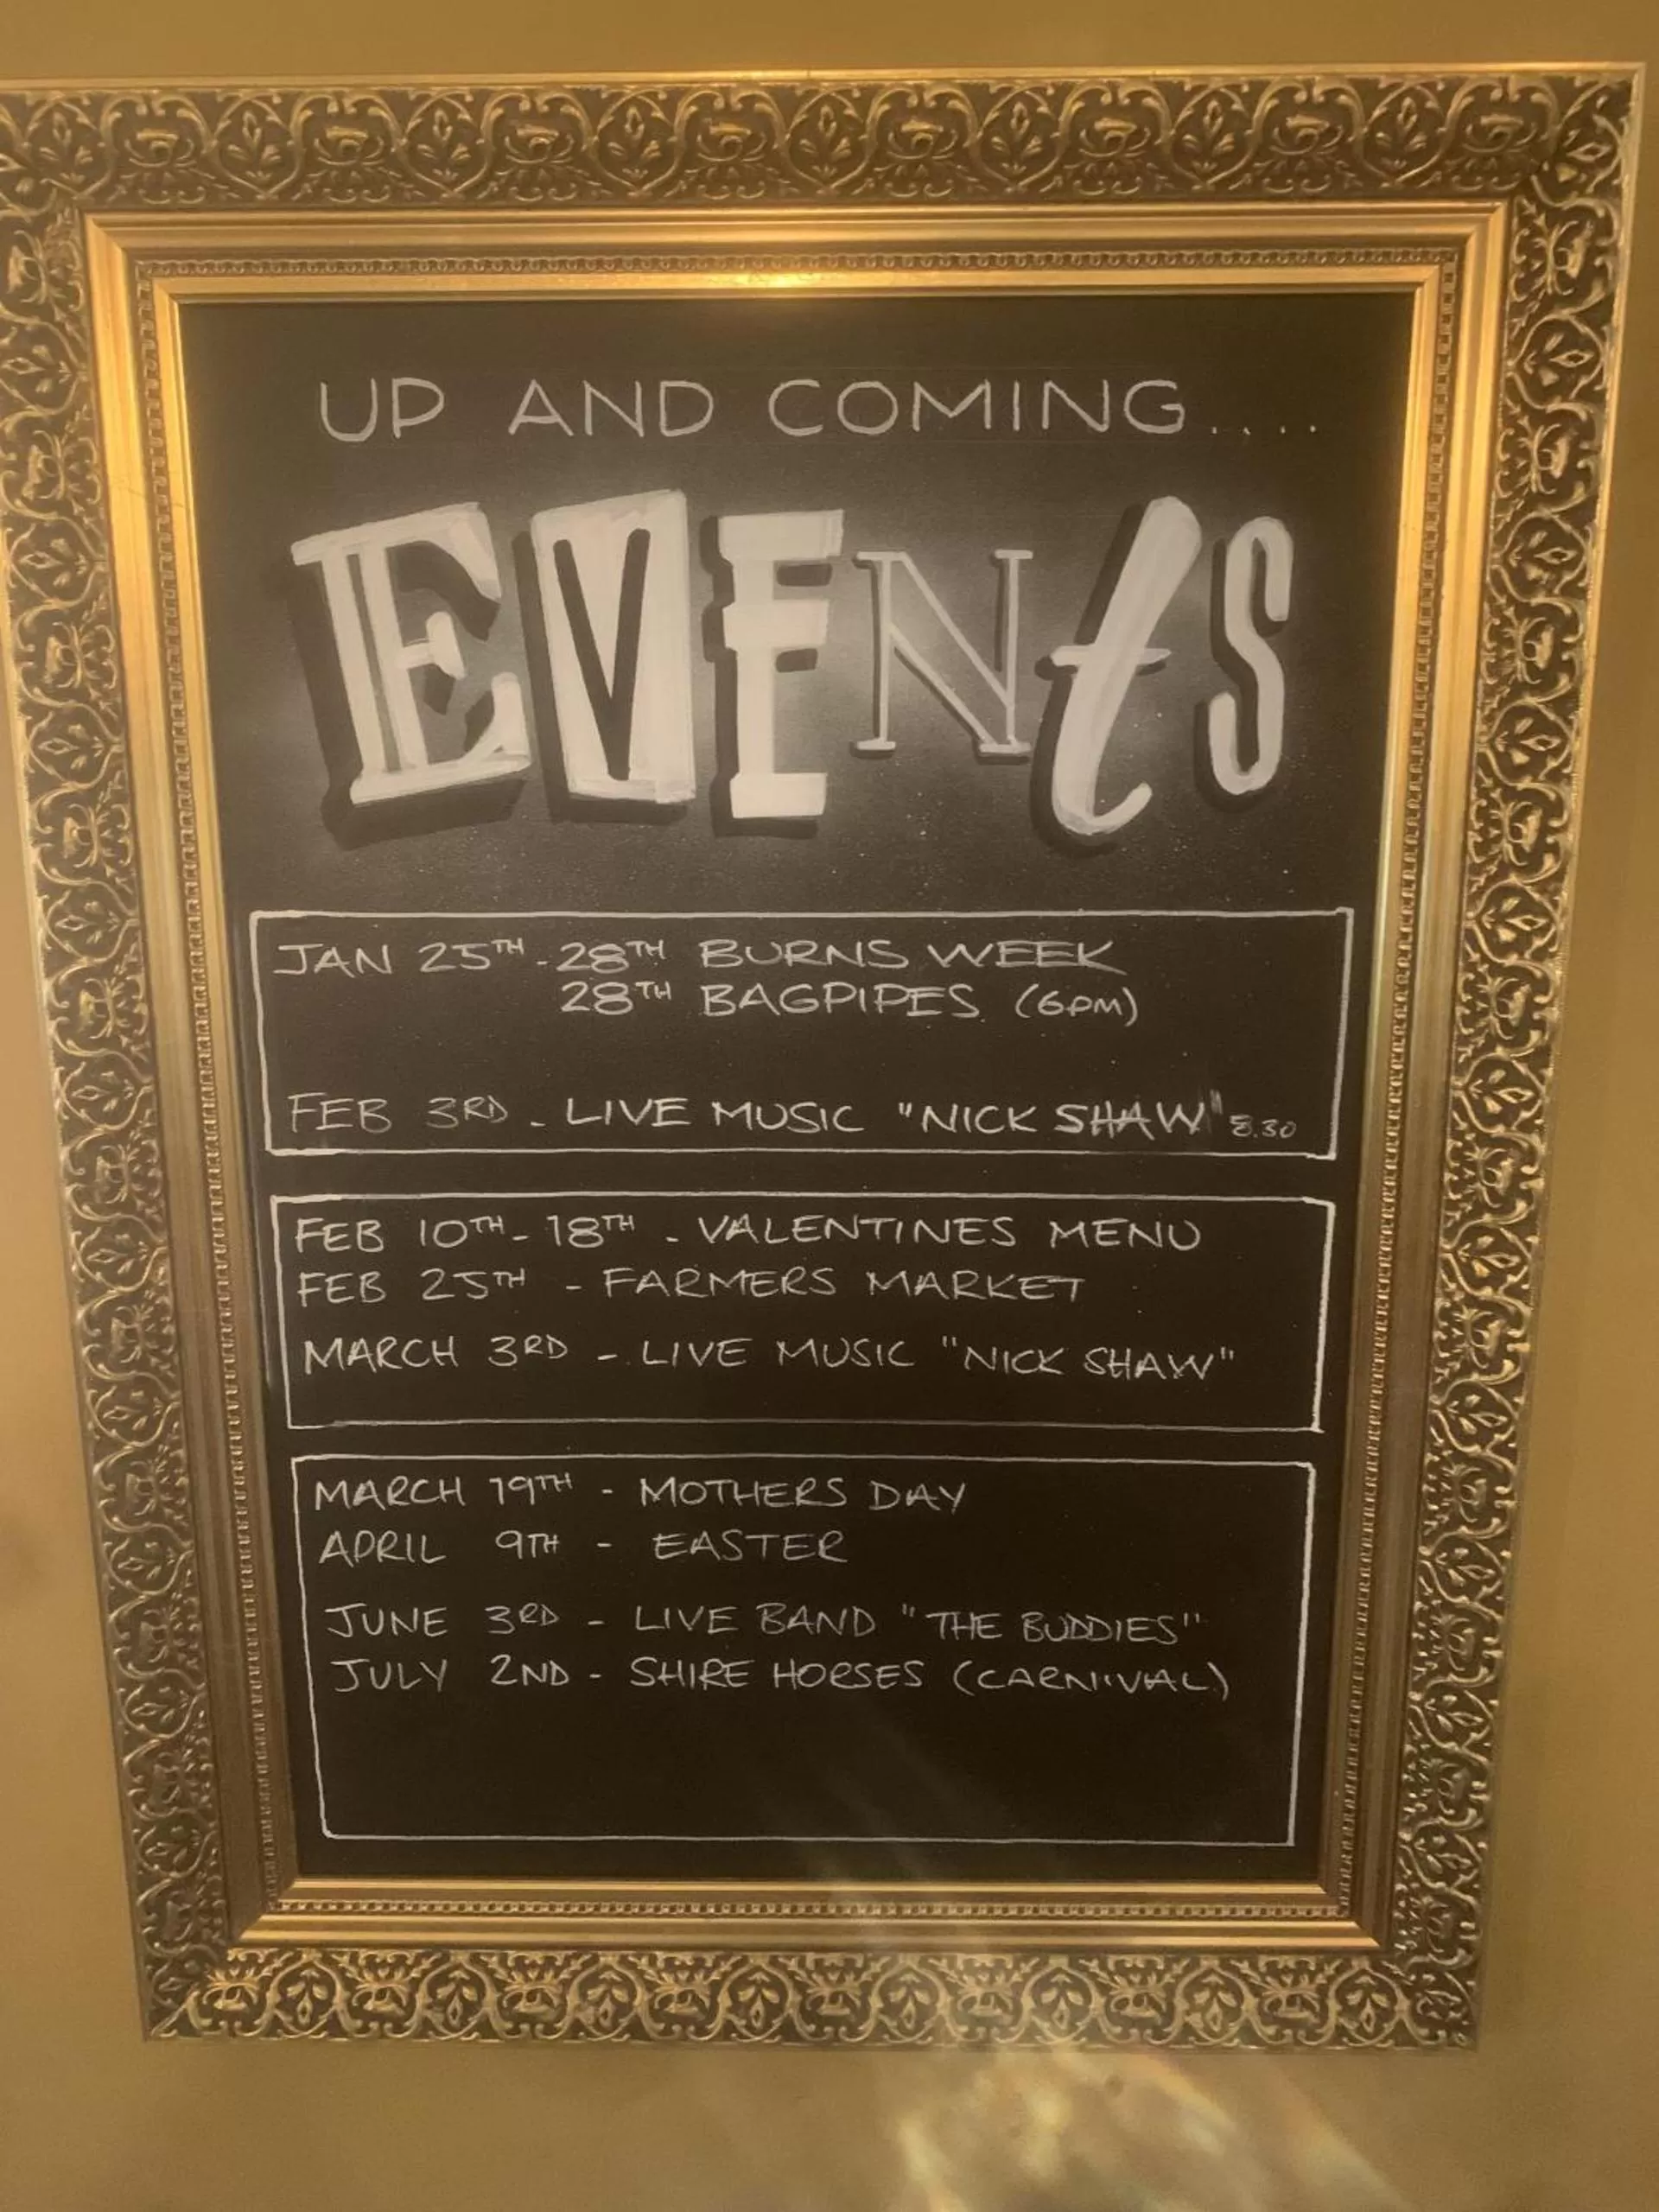 UP AND COMING....
EVENtS
JAN 25TH - 28TH BURNS WEEK
28TH BAGPIPES (6PM)
FEB 3RD - LIVE MUSIC "NICK SHAW" 8.30
FEB 10TH - 18TH - VALENTINES MENU
FEB 25TH - FARMERS MARKET
MARCH 3RD - LIVE MUSIC "NICK SHAW"
MARCH 19TH - MOTHERS DAY
APRIL 9TH - EASTER
JUNE 3RD - LIVE BAND "THE BUDDIES"
JULY 2ND - SHIRE HORSES (CARNIVAL)